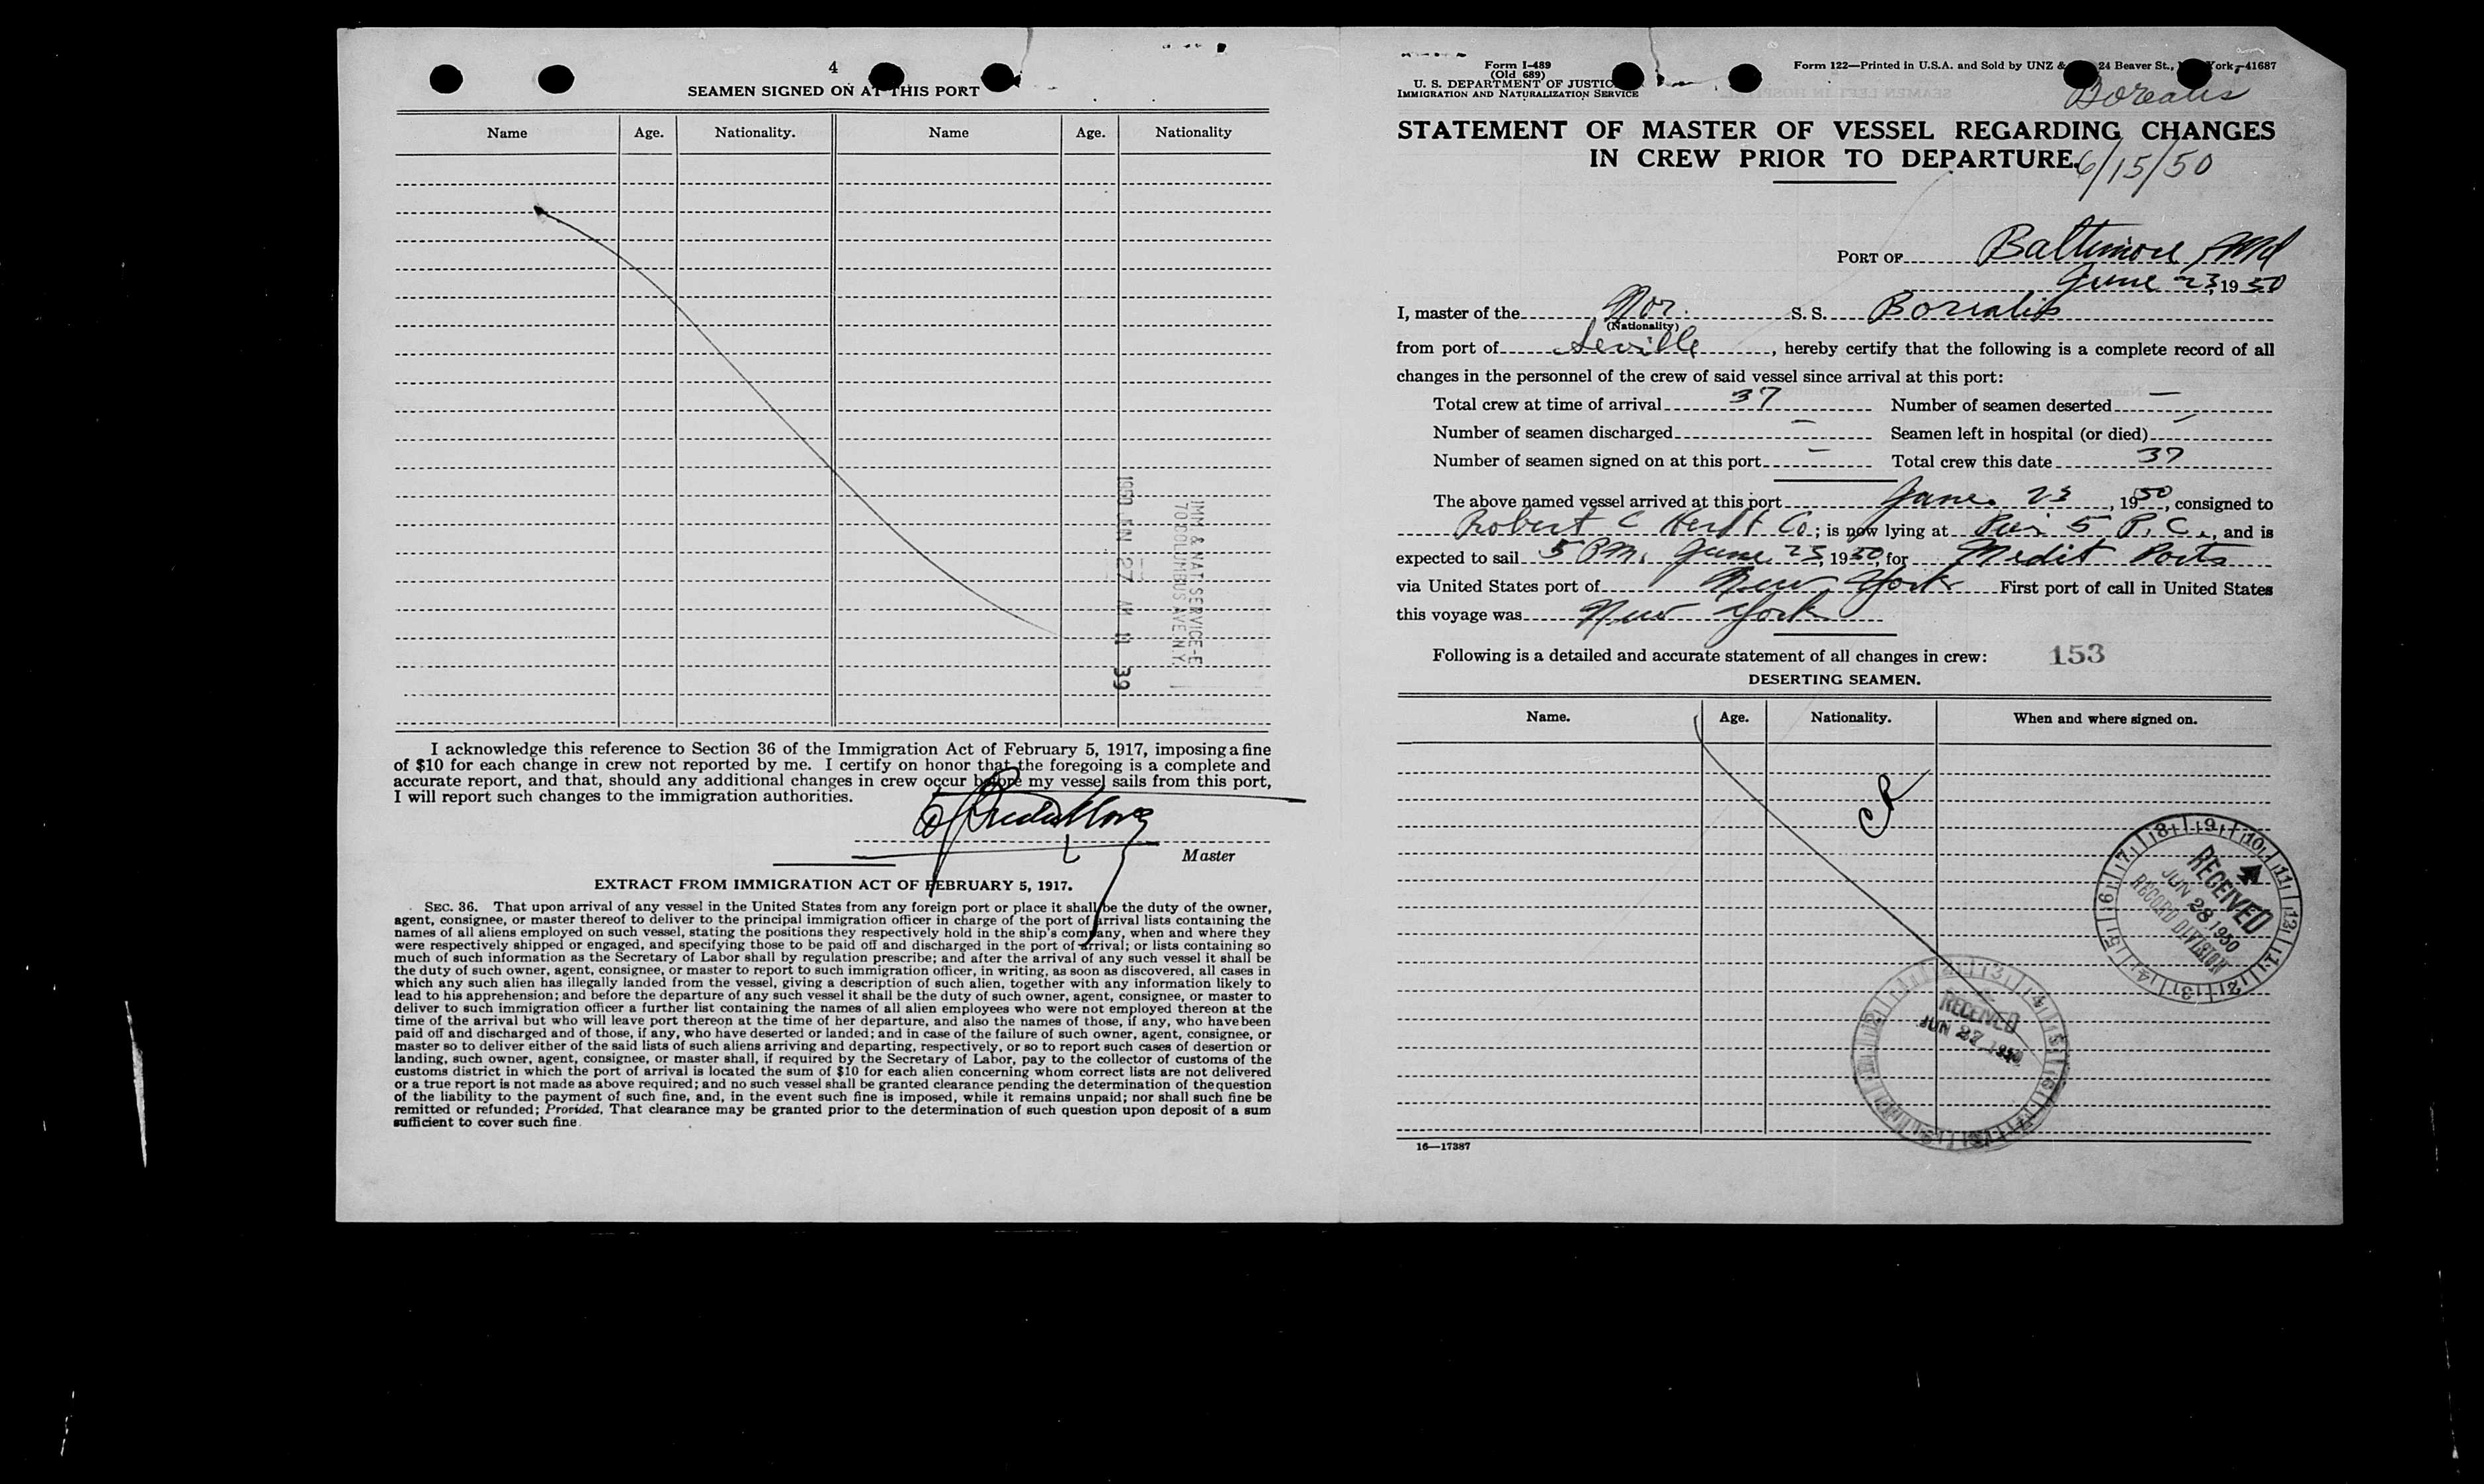 4
SEAMEN SIGNED ON AT THIS PORT
Name Age. Nationality. Name Age. Nationality
IMM & NAT SERVICE-E
70 COLUMBUS AVE N.Y.
1950 JUN 27 AM 11 39
I acknowledge this reference to Section 36 of the Immigration Act of February 5, 1917, imposing a fine
of $10 for each change in crew not reported by me. I certify on honor that the foregoing is a complete and
accurate report, and that, should any additional changes in crew occur before my vessel sails from this port,
I will report such changes to the immigration authorities.
Master
EXTRACT FROM IMMIGRATION ACT OF FEBRUARY 5, 1917.
SEC. 36. That upon arrival of any vessel in the United States from any foreign port or place it shall be the duty of the owner,
agent, consignee, or master thereof to deliver to the principal immigration officer in charge of the port of arrival lists containing the
names of all aliens employed on such vessel, stating the positions they respectively hold in the ship's company, when and where they
were respectively shipped or engaged, and specifying those to be paid off and discharged in the port of arrival; or lists containing so
much of such information as the Secretary of Labor shall by regulation prescribe; and after the arrival of any such vessel it shall be
the duty of such owner, agent, consignee, or master to report to such immigration officer, in writing, as soon as discovered, all cases in
which any such alien has illegally landed from the vessel, giving a description of such alien, together with any information likely to
lead to his apprehension; and before the departure of any such vessel it shall be the duty of such owner, agent, consignee, or master to
deliver to such immigration officer a further list containing the names of all alien employees who were not employed thereon at the
time of the arrival but who will leave port thereon at the time of her departure, and also the names of those, if any, who have been
paid off and discharged and of those, if any, who have deserted or landed; and in case of the failure of such owner, agent, consignee, or
master so to deliver either of the said lists of such aliens arriving and departing, respectively, or so to report such cases of desertion or
landing, such owner, agent, consignee, or master shall, if required by the Secretary of Labor, pay to the collector of customs of the
customs district in which the port of arrival is located the sum of $10 for each alien concerning whom correct lists are not delivered
or a true report is not made as above required; and no such vessel shall be granted clearance pending the determination of the question
of the liability to the payment of such fine, and, in the event such fine is imposed, while it remains unpaid; nor shall such fine be
remitted or refunded; Provided, That clearance may be granted prior to the determination of such question upon deposit of a sum
sufficient to cover such fine.
Form I-489
(Old 689)
U. S. DEPARTMENT OF JUSTIC
IMMIGRATION AND NATURALIZATION SERVICE
Form 122—Printed in U.S.A. and Sold by UNZ & 24 Beaver St., ork—41687
Borealis
STATEMENT OF MASTER OF VESSEL REGARDING CHANGES
IN CREW PRIOR TO DEPARTURE.
6/15/50
PORT OF Baltimore Md
June 23, 1950
I, master of the Nor. S. S. Borealis
(Nationality)
from port of Seville, hereby certify that the following is a complete record of all
changes in the personnel of the crew of said vessel since arrival at this port:
Total crew at time of arrival 37 Number of seamen deserted —
Number of seamen discharged — Seamen left in hospital (or died) —
Number of seamen signed on at this port — Total crew this date 37
The above named vessel arrived at this port June 23, 1950, consigned to
Robert C Herd & Co; is now lying at Pier 5 P. C., and is
expected to sail 5 PM. June 23, 1950, for Medit Ports
via United States port of New York First port of call in United States
this voyage was New York
Following is a detailed and accurate statement of all changes in crew: 153
DESERTING SEAMEN.
Name. Age. Nationality. When and where signed on.
RECEIVED
JUN 28 1950
RECORD DIVISION
RECEIVED
JUN 27 1950
16—17387